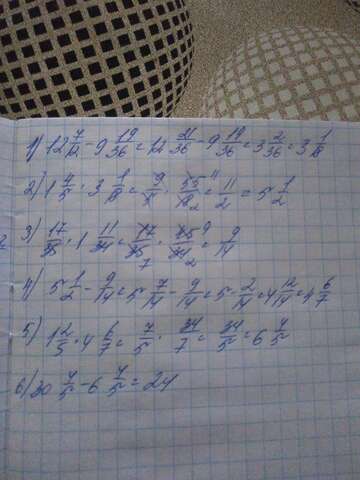 1) 12 7/12 - 9 19/36 = 12 21/36 - 9 19/36 = 3 2/36 = 3 1/18
2) 1 4/5 · 3 1/18 = 9/5 · 55/18 = 11/2 = 5 1/2
3) 17/35 · 1 11/34 = 17/35 · 45/34 = 9/14
4) 5 1/2 - 9/14 = 5 7/14 - 9/14 = 5 - 2/14 = 4 12/14 = 4 6/7
5) 1 2/5 · 4 6/7 = 7/5 · 34/7 = 34/5 = 6 4/5
6) 30 4/5 - 6 4/5 = 24